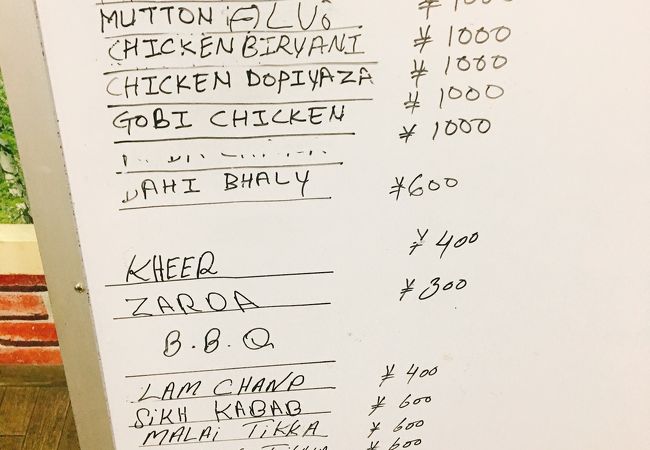 MUTTON ALU ¥ 1000
CHICKEN BIRYANI ¥ 1000
CHICKEN DOPIYAZA ¥ 1000
GOBI CHICKEN ¥ 1000
¥ 1000
DAHI BHALY ¥600
KHEER ¥ 400
ZARDA ¥ 300
B.B.Q
LAM CHANP ¥ 400
SIKH KABAB ¥ 600
MALAI TIKKA ¥ 600
TIKKA ¥ 600